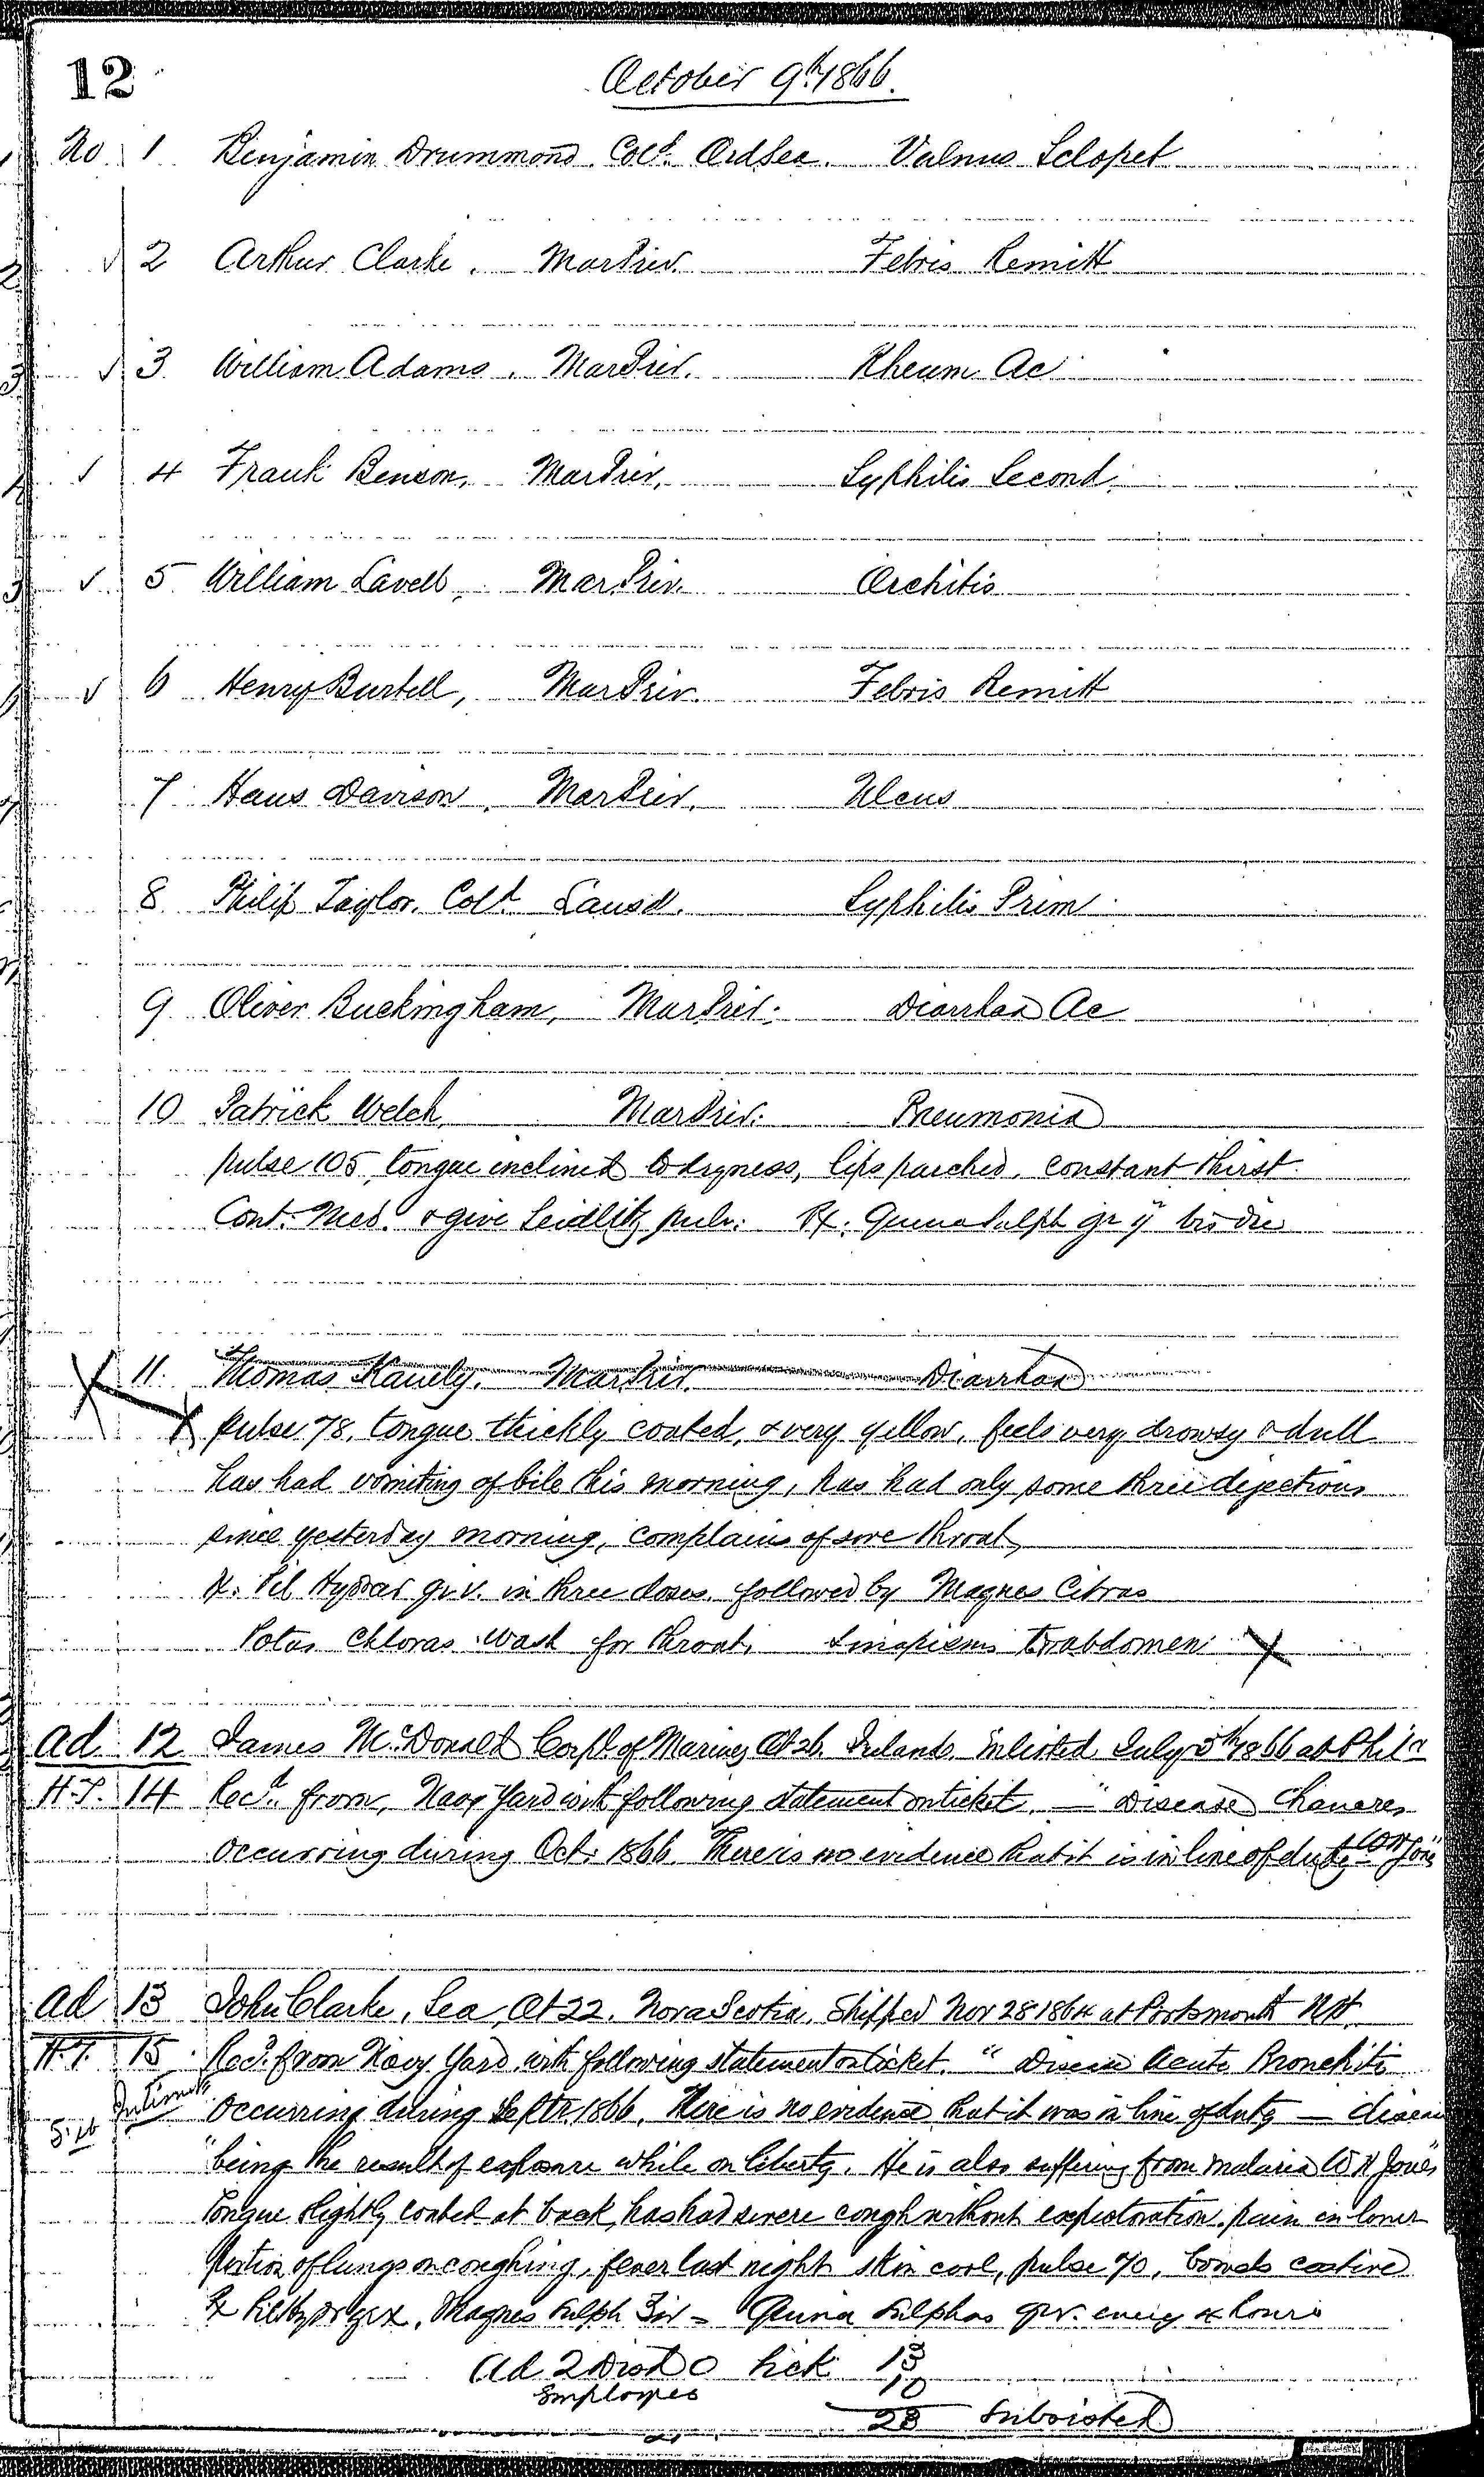 12
October 9th 1866.
No 1 Benjamin Drummond. Cold. Ord Sea. Vulnus Sclopet
2 Arthur Clarke. Mar Priv. Febris Remitt
3 William Adams. Mar Priv. Rheum Ac
4 Frank Benson, Mar Priv. Syphilis Second.
5 William Lavell, Mar. Priv. Orchitis
6 Henry Burtell, Mar Priv. Febris Remitt
7 Hans Davison, Mar Priv. Ulcus
8 Philip Taylor. Cold. Landsn. Syphilis Prim
9 Oliver Buckingham, Mar Priv. Diarrhœa Ac
10 Patrick Welch, Mar Priv. Pneumonia
pulse 105, tongue inclined to dryness, lips parched, constant thirst
Cont. Med. & give Seidlitz pulv. Rx. Quina Sulph gr ij bis die
11. Thomas Mar Priv. Diarrhœa
pulse 78, tongue thickly coated, & very yellow, feels very drowsy & dull
has had vomiting of bile this morning, has had only some three dejections
since yesterday morning, complains of sore throat,
Rx. Pil Hydrar gr. v. in three doses. followed by Magnes Citras
Potas Chloras wash for throat. Sinapisms to abdomen
ad 12 James McDonald Corpl of Marines Æt 26. Ireland. Enlisted July 5th 1866 at Phila
H.T. 14 Recd. from Navy Yard with following statement on ticket. — "Disease Chancres
occurring during Oct. 1866. There is no evidence that it is in line of duty — W H Jones"
ad 13 John Clarke, Sea, Æt 22. Nova Scotia, Shipped Nov 28 1864 at Portsmouth NH.
H.T. 15 Recd. from Navy Yard with following statement on ticket. "Disease Acute Bronchitis
occurring during Septr. 1866. There is no evidence that it was in line of duty — disease
"being the result of exposure while on liberty. He is also suffering from malaria W H Jones"
Tongue slightly coated at back, has had severe cough without expectoration. pain in lower
portion of lungs on coughing, fever last night skin cool, pulse 70, bowels costive
Rx Pil Hydr gr x, Magnes Sulph ℥iv = Quina Sulphas gr v. every 4 hours
Ad 2 Disd 0 Sick 13
Employes 10
23 Subsisted